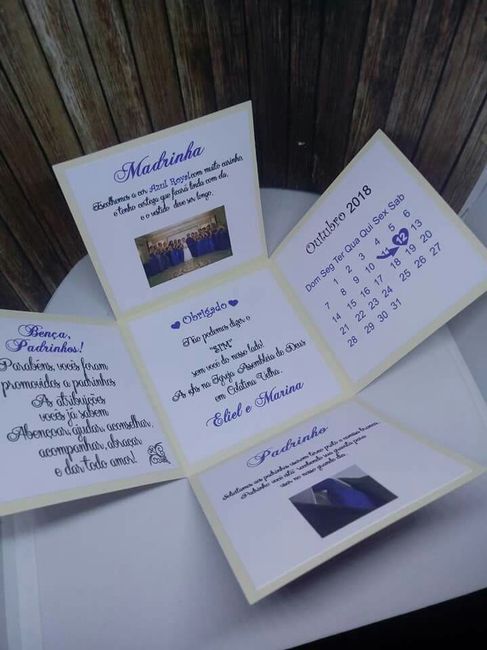 Madrinha
Escolhemos a cor Azul Royal com muito carinho,
e tenho certeza que ficará linda com ela,
e o vestido deve ser longo.
Outubro 2018
Dom Seg Ter Qua Qui Sex Sab
1 2 3 4 5 6
7 8 9 10 11 12 13
14 15 16 17 18 19 20
21 22 23 24 25 26 27
28 29 30 31
Bença,
Padrinhos!
Parabéns, vocês foram
promovidos a padrinhos
As atribuições
vocês já sabem
Abençoar, ajudar, aconselhar,
acompanhar, abraçar
e dar todo amor!
Obrigado
Não podemos dizer o
"SIM"
sem você do nosso lado!
As na Igreja Assembléia de Deus
em Colatina Velha.
Eliel e Marina
Padrinho
Solicitamos aos padrinhos usarem terno preto e
Padrinho você está recebendo sua gravata para
usar no nosso grande dia.